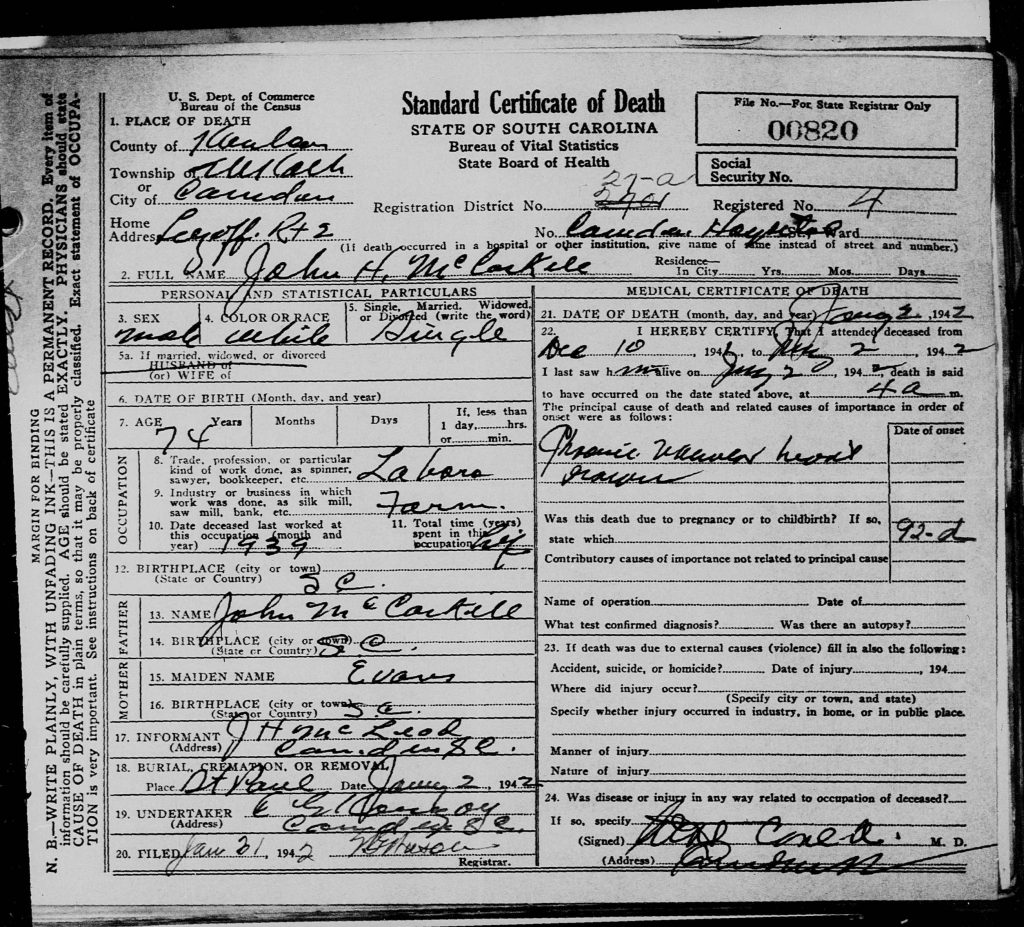 U. S. Dept. of Commerce
Bureau of the Census
Standard Certificate of Death
STATE OF SOUTH CAROLINA
Bureau of Vital Statistics
State Board of Health
File No.—For State Registrar Only
00820
Social
Security No.
1. PLACE OF DEATH
County of
Township of
or
City of Camden
Registration District No. 27-a
Registered No. 4
Home
Address Lugoff. Rt 2
No. Camden Hospital St. Ward
(If death occurred in a hospital or other institution, give name of same instead of street and number.)
2. FULL NAME John H. McCaskill
Residence—
In City Yrs. Mos. Days
PERSONAL AND STATISTICAL PARTICULARS
3. SEX
male
4. COLOR OR RACE
white
5. Single, Married, Widowed,
or Divorced (write the word)
Single
5a. If married, widowed, or divorced
HUSBAND of
(or) WIFE of
6. DATE OF BIRTH (Month, day, and year)
7. AGE 74 Years Months Days
If, less than
1 day, hrs.
or min.
OCCUPATION
8. Trade, profession, or particular
kind of work done, as spinner,
sawyer, bookkeeper, etc.
9. Industry or business in which
work was done, as silk mill,
saw mill, bank, etc. Farm.
10. Date deceased last worked at
this occupation (month and
year) 1939
11. Total time (years)
spent in this
occupation
12. BIRTHPLACE (city or town)
(State or Country) S C.
FATHER
13. NAME John McCaskill
14. BIRTHPLACE (city or town)
(State or Country) S. C.
MOTHER
15. MAIDEN NAME Evans
16. BIRTHPLACE (city or town)
(State or Country) S. C.
17. INFORMANT J H McLeod
(Address) Camden S C.
18. BURIAL, CREMATION, OR REMOVAL
Place St Paul Date Jany 2, 1942
19. UNDERTAKER
(Address) Camden S C.
20. FILED Jan 31 1942
Registrar.
MEDICAL CERTIFICATE OF DEATH
21. DATE OF DEATH (month, day, and year) Jany 2, 1942
22. I HEREBY CERTIFY, That I attended deceased from
Dec 10, 1941, to Jany 2, 1942
I last saw him alive on Jany 2, 1942, death is said
to have occurred on the date stated above, at 4 a m.
The principal cause of death and related causes of importance in order of
onset were as follows:
Date of onset
Chronic
Was this death due to pregnancy or to childbirth? If so,
state which
92-d
Contributory causes of importance not related to principal cause
Name of operation Date of
What test confirmed diagnosis? Was there an autopsy?
23. If death was due to external causes (violence) fill in also the following:
Accident, suicide, or homicide? Date of injury, 194
Where did injury occur?
(Specify city or town, and state)
Specify whether injury occurred in industry, in home, or in public place.
Manner of injury
Nature of injury
24. Was disease or injury in any way related to occupation of deceased?
If so, specify
(Signed) M. D.
(Address)
MARGIN FOR BINDING
N. B.—WRITE PLAINLY, WITH UNFADING INK—THIS IS A PERMANENT RECORD. Every item of
information should be carefully supplied. AGE should be stated EXACTLY. PHYSICIANS should state
CAUSE OF DEATH in plain terms, so that it may be properly classified. Exact statement of OCCUPA-
TION is very important. See instructions on back of certificate